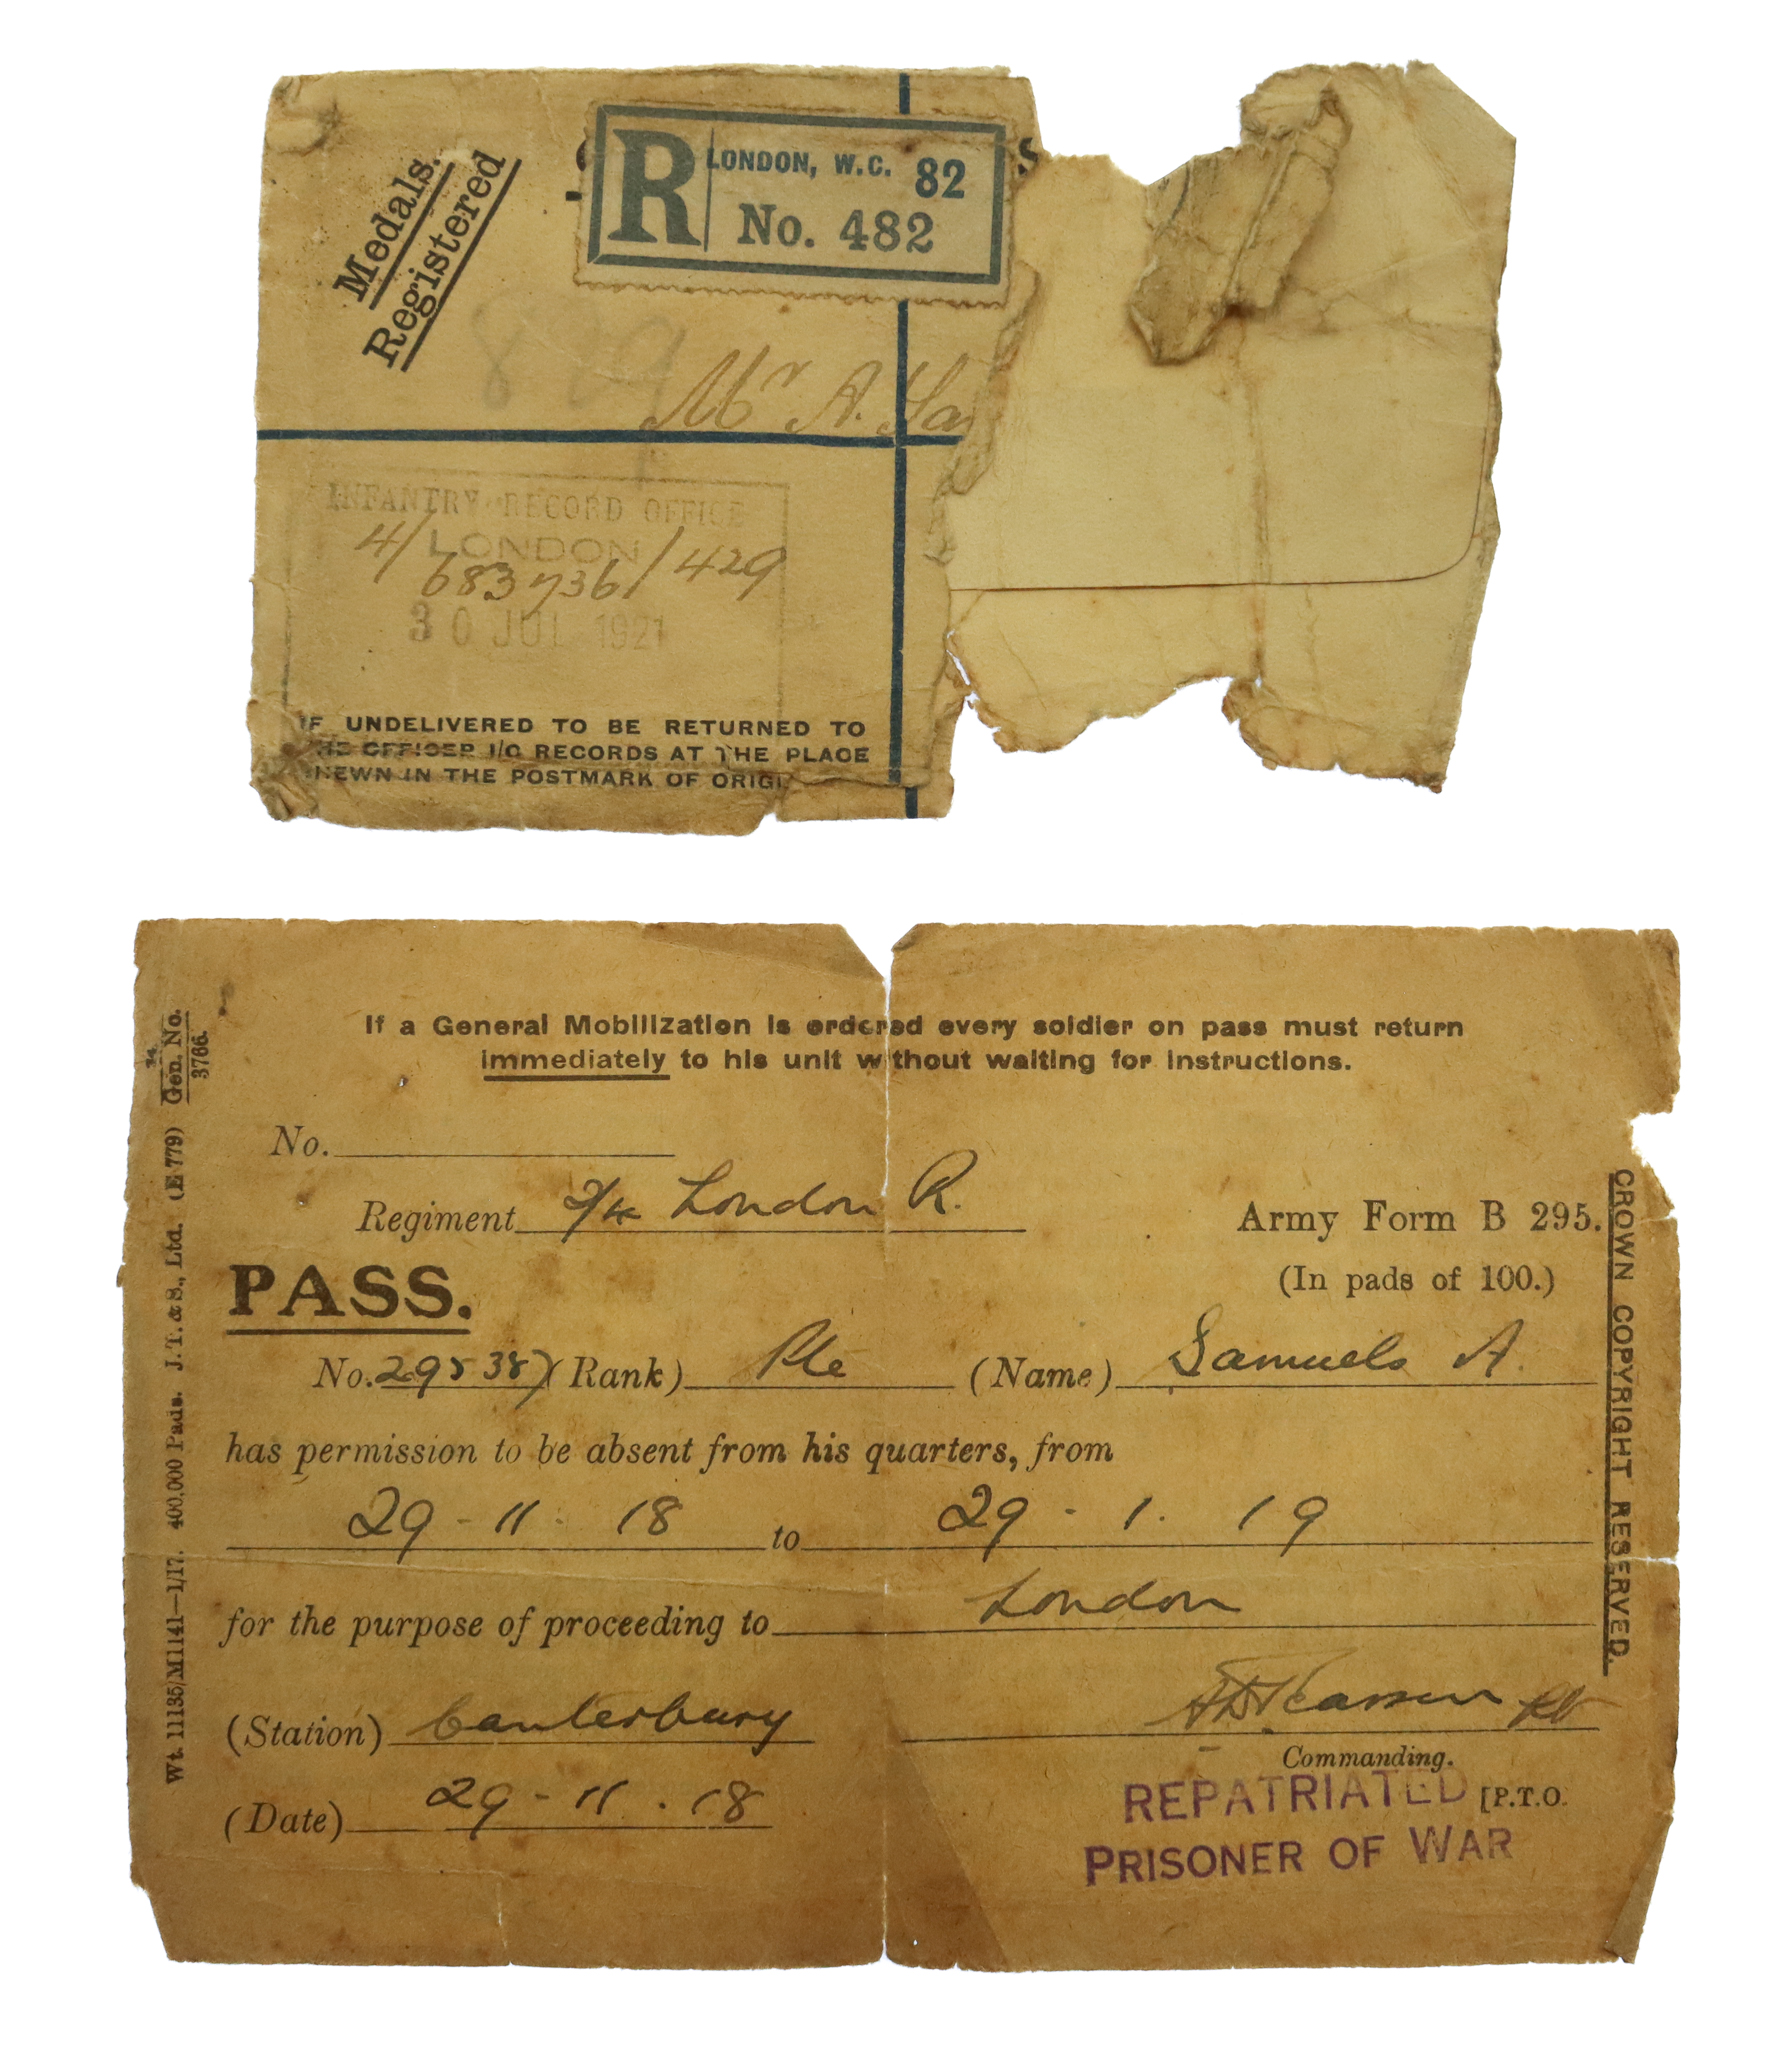 Medals.
Registered
R LONDON, W.C. 82
No. 482
879
Mr A. Sa
INFANTRY RECORD OFFICE
LONDON
4/683736/429
30 JUL 1921
IF UNDELIVERED TO BE RETURNED TO
HE OFFICER I/C RECORDS AT THE PLACE
HEWN IN THE POSTMARK OF ORIGI
If a General Mobilization is ordered every soldier on pass must return
immediately to his unit without waiting for instructions.
No.
Regiment 2/4 London R.
Army Form B 295.
(In pads of 100.)
PASS.
No. 295387 (Rank) Pte (Name) Samuels A.
has permission to be absent from his quarters, from
29-11-18 to 29-1.19
for the purpose of proceeding to London
(Station) Canterbury
Commanding.
(Date) 29-11.18
[P.T.O.
REPATRIATED
PRISONER OF WAR
Wt. 11135/M1141—1/17. 400,000 Pads. J. T. & S., Ltd. (E 779) Gen. No. 3766.
CROWN COPYRIGHT RESERVED.